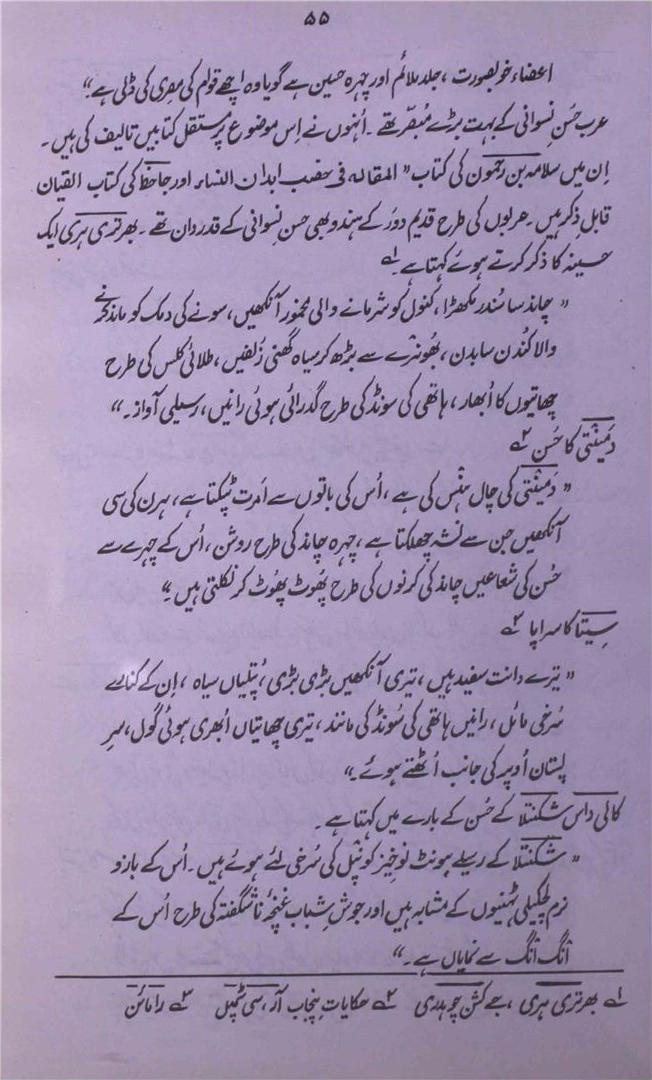 ۵۵
اعضاء خوبصورت، جلد ملائم اور چہرہ حسین ہے گویا وہ اچھے قوام کی مصری کی ڈلی ہے۔"
عرب حُسنِ نسوانی کے بہت بڑے مُبصّر تھے۔ اُنہوں نے اِس موضوع پر مستقل کتابیں تالیف کی ہیں۔
اِن میں سلامہ بن رحمون کی کتاب "المقالہ فی خصب ابدان النساء اور جاحظ کی کتاب القیان
قابلِ ذِکر ہیں۔ عربوں کی طرح قدیم دَور کے ہندو بھی حسن نِسوانی کے قدردان تھے۔ بھرتری ہری ایک
حسینہ کا ذکر کرتے ہوئے کہتا ہے۔ ۱؎
"چاند سا سُندر مُکھڑا، کنول کو شرمانے والی مخمور آنکھیں، سونے کی دمک کو ماند کرنے
والا کُندن سا بدن، بھونرے سے بڑھ کر سیاہ گھنی زُلفیں، طلائی کلس کی طرح
چھاتیوں کا اُبھار، ہاتھی کی سونڈ کی طرح گدرائی ہوئی رانیں، رسیلی آواز۔"
دمینتی کا حُسن ۲؎
"دمینتی کی چال ہنس کی ہے، اُس کی باتوں سے اَمرت ٹپکتا ہے، ہرن کی سی
آنکھیں جن سے نشہ چھلکتا ہے، چہرہ چاند کی طرح روشن، اُس کے چہرے سے
حُسن کی شعاعیں چاند کی کرنوں کی طرح پھُوٹ پھُوٹ کر نکلتی ہیں۔"
سیتا کا سراپا ۳؎
"تیرے دانت سفید ہیں، تیری آنکھیں بڑی بڑی، پُتلیاں سیاہ، اِن کے کنارے
سُرخی مائل، رانیں ہاتھی کی سُونڈ کی مانند، تیری چھاتیاں اُبھری ہوئی گول، سرِ
پستان اُوپر کی جانب اُٹھتے ہوئے۔"
کالی داس شکنتلا کے حُسن کے بارے میں کہتا ہے۔
"شکنتلا کے رسیلے ہونٹ نوخیز کونپل کی سُرخی لئے ہوئے ہیں۔ اُس کے بازو
نرم لچکیلی ٹہنیوں کے مشابہ ہیں اور جوشِ شباب غنچۂ ناشگفتہ کی طرح اُس کے
انگ انگ سے نمایاں ہے۔"
۱؎ بھرتری ہری، جے کشن چوہدری ۲؎ حکایات پنجاب آر، سی ٹمپل ۳؎ رامائن